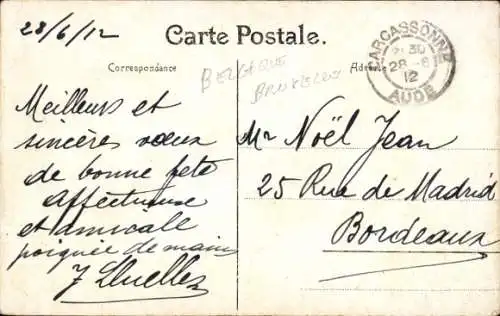 28/6/12
Carte Postale.
Correspondance
Adresse
BELGIQUE
BRUXELLES
CARCASSONNE
28-6
12
AUDE
Meilleurs et
sincères vœux
de bonne fête
Affectueuse
et amicale
poignée de main
Mr Noël Jean
25 Rue de Madrid
Bordeaux